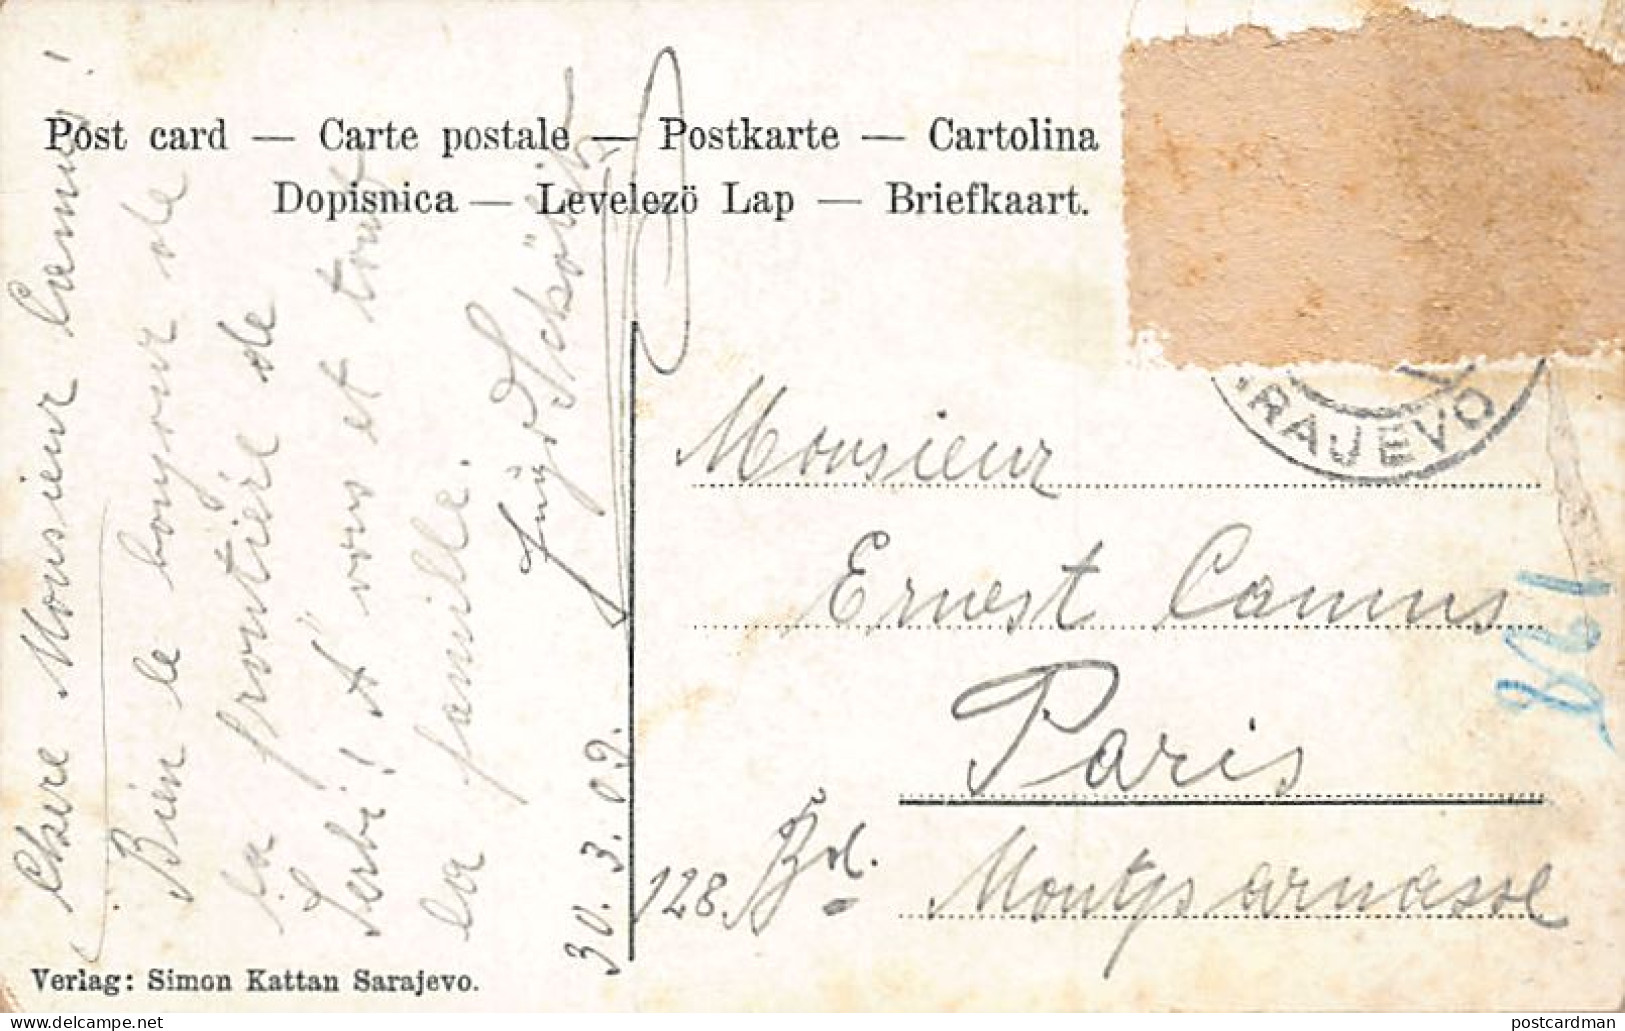 Post card — Carte postale — Postkarte — Cartolina
Dopisnica — Levelezö Lap — Briefkaart.
RAJEVO
Monsieur
Ernest Camus
Paris
128 Bd. Montparnasse
861
Chere Monsieur Camus!
Bien le bonjour de
la frontiére de
Serbi! A vous et tout
la famille.
30.3.09.
Verlag: Simon Kattan Sarajevo.
postcardman
www.delcampe.net